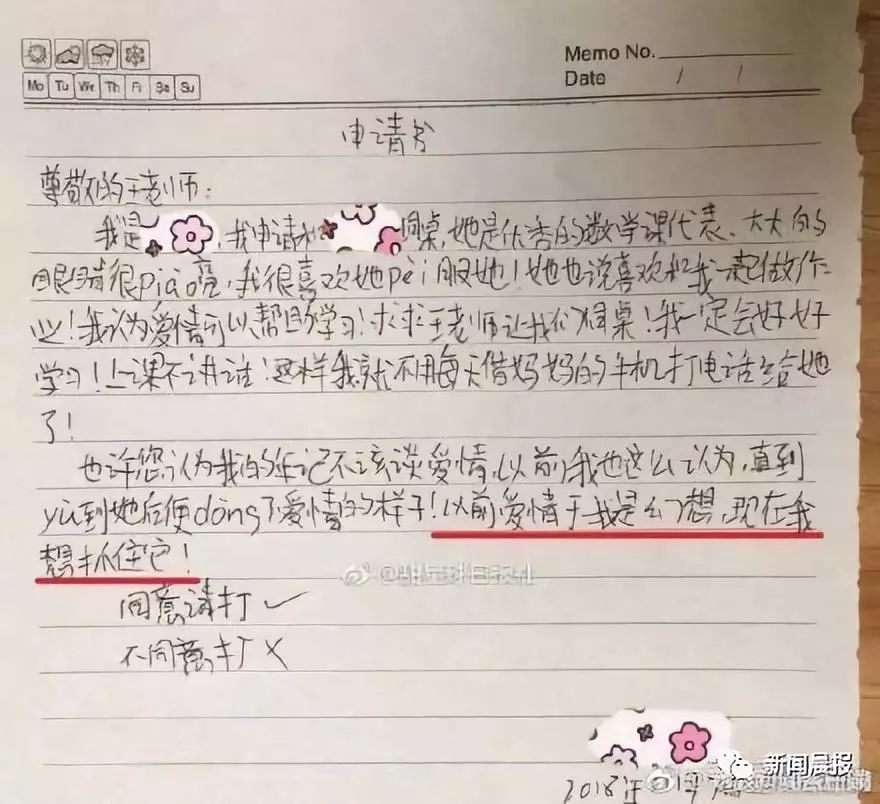 Memo No.
Mo Tu We Th Fr Sa Su
Date / /
申请书
尊敬的王老师：
我是，我申请和同桌，她是优秀的数学课代表、大大的
眼睛很piào亮，我很喜欢她pèi服她！她也说喜欢和我一起做作
业！我认为爱情可以帮助学习！求求王老师让我们同桌！我一定会好好
学习！上课不讲话！这样我就不用每天借妈妈的手机打电话给她
了！
也许您认为我的年记不该谈爱情，以前我也这么认为，直到
yù到她后便dǒng了爱情的样子！以前爱情于我是幻想，现在我
想抓住它！
同意请打✓
不同意打✗
2018年
新闻晨报